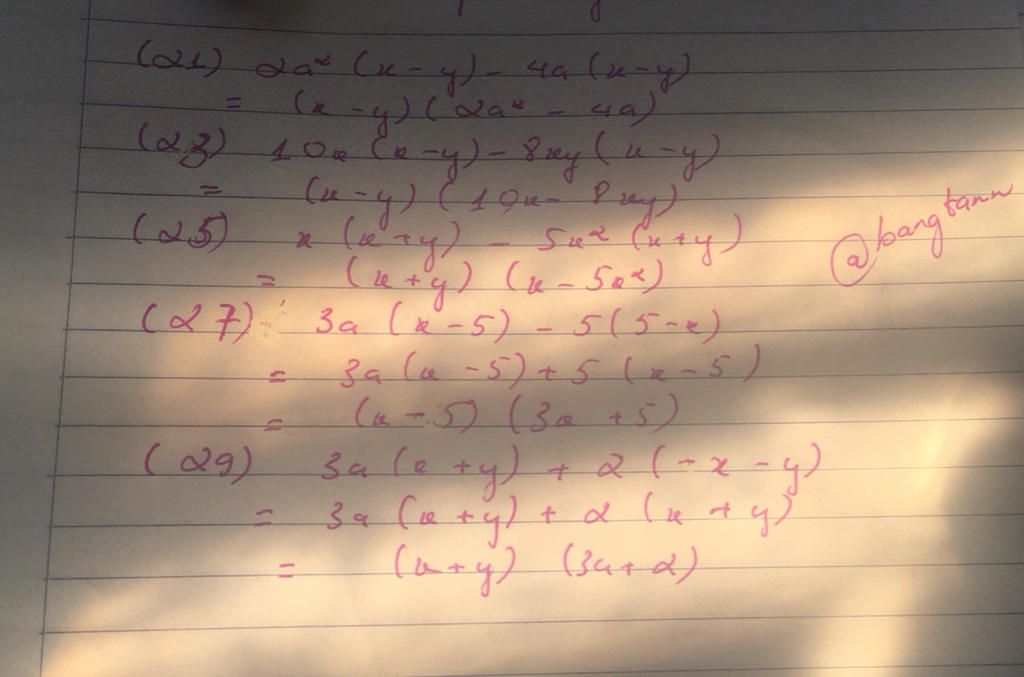 (21) 2a² (x-y) - 4a (x-y)
= (x-y) (2a² - 4a)
(23) 10x (x-y) - 8xy (x-y)
= (x-y) (10x - 8xy)
(25) x (x+y) - 5x² (x+y)
= (x+y) (x - 5x²)
@bangtann
(27) 3a (x-5) - 5 (5-x)
= 3a (x-5) + 5 (x-5)
= (x-5) (3a+5)
(29) 3a (x+y) + 2 (-x-y)
= 3a (x+y) + 2 (x+y)
= (x+y) (3a+2)